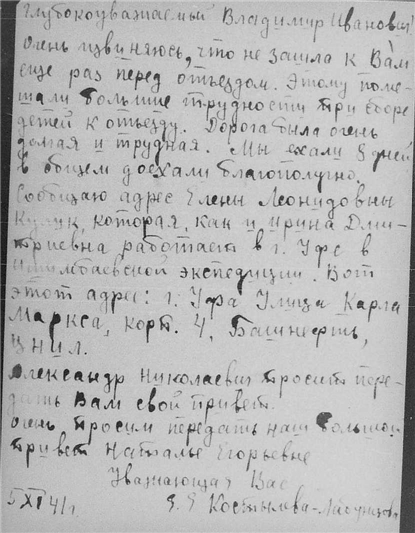 Глубокоуважаемый Владимир Иванович
Очень извиняюсь, что не зашла к Вам
еще раз перед отъездом. Этому поме-
шали большие трудности при сборе
детей к отъезду. Дорога была очень
долгая и трудная. Мы ехали 8 дней
в общем доехали благополучно.
Сообщаю адрес Елены Леонидовны
Кулик, которая, как и Ирина Дми-
триевна работает в г. Уфе в
Ишимбаевской экспедиции. Вот
этот адрес: г. Уфа Улица Карла
Маркса, корп. 4, Башнефть,
ЦНИЛ.
Александр Николаевич просит пере-
дать Вам свой привет.
Очень просим передать наш большой
привет Наталье Егорьевне
Уважающая Вас
5 XI 41 г. Е. Е Костылева-